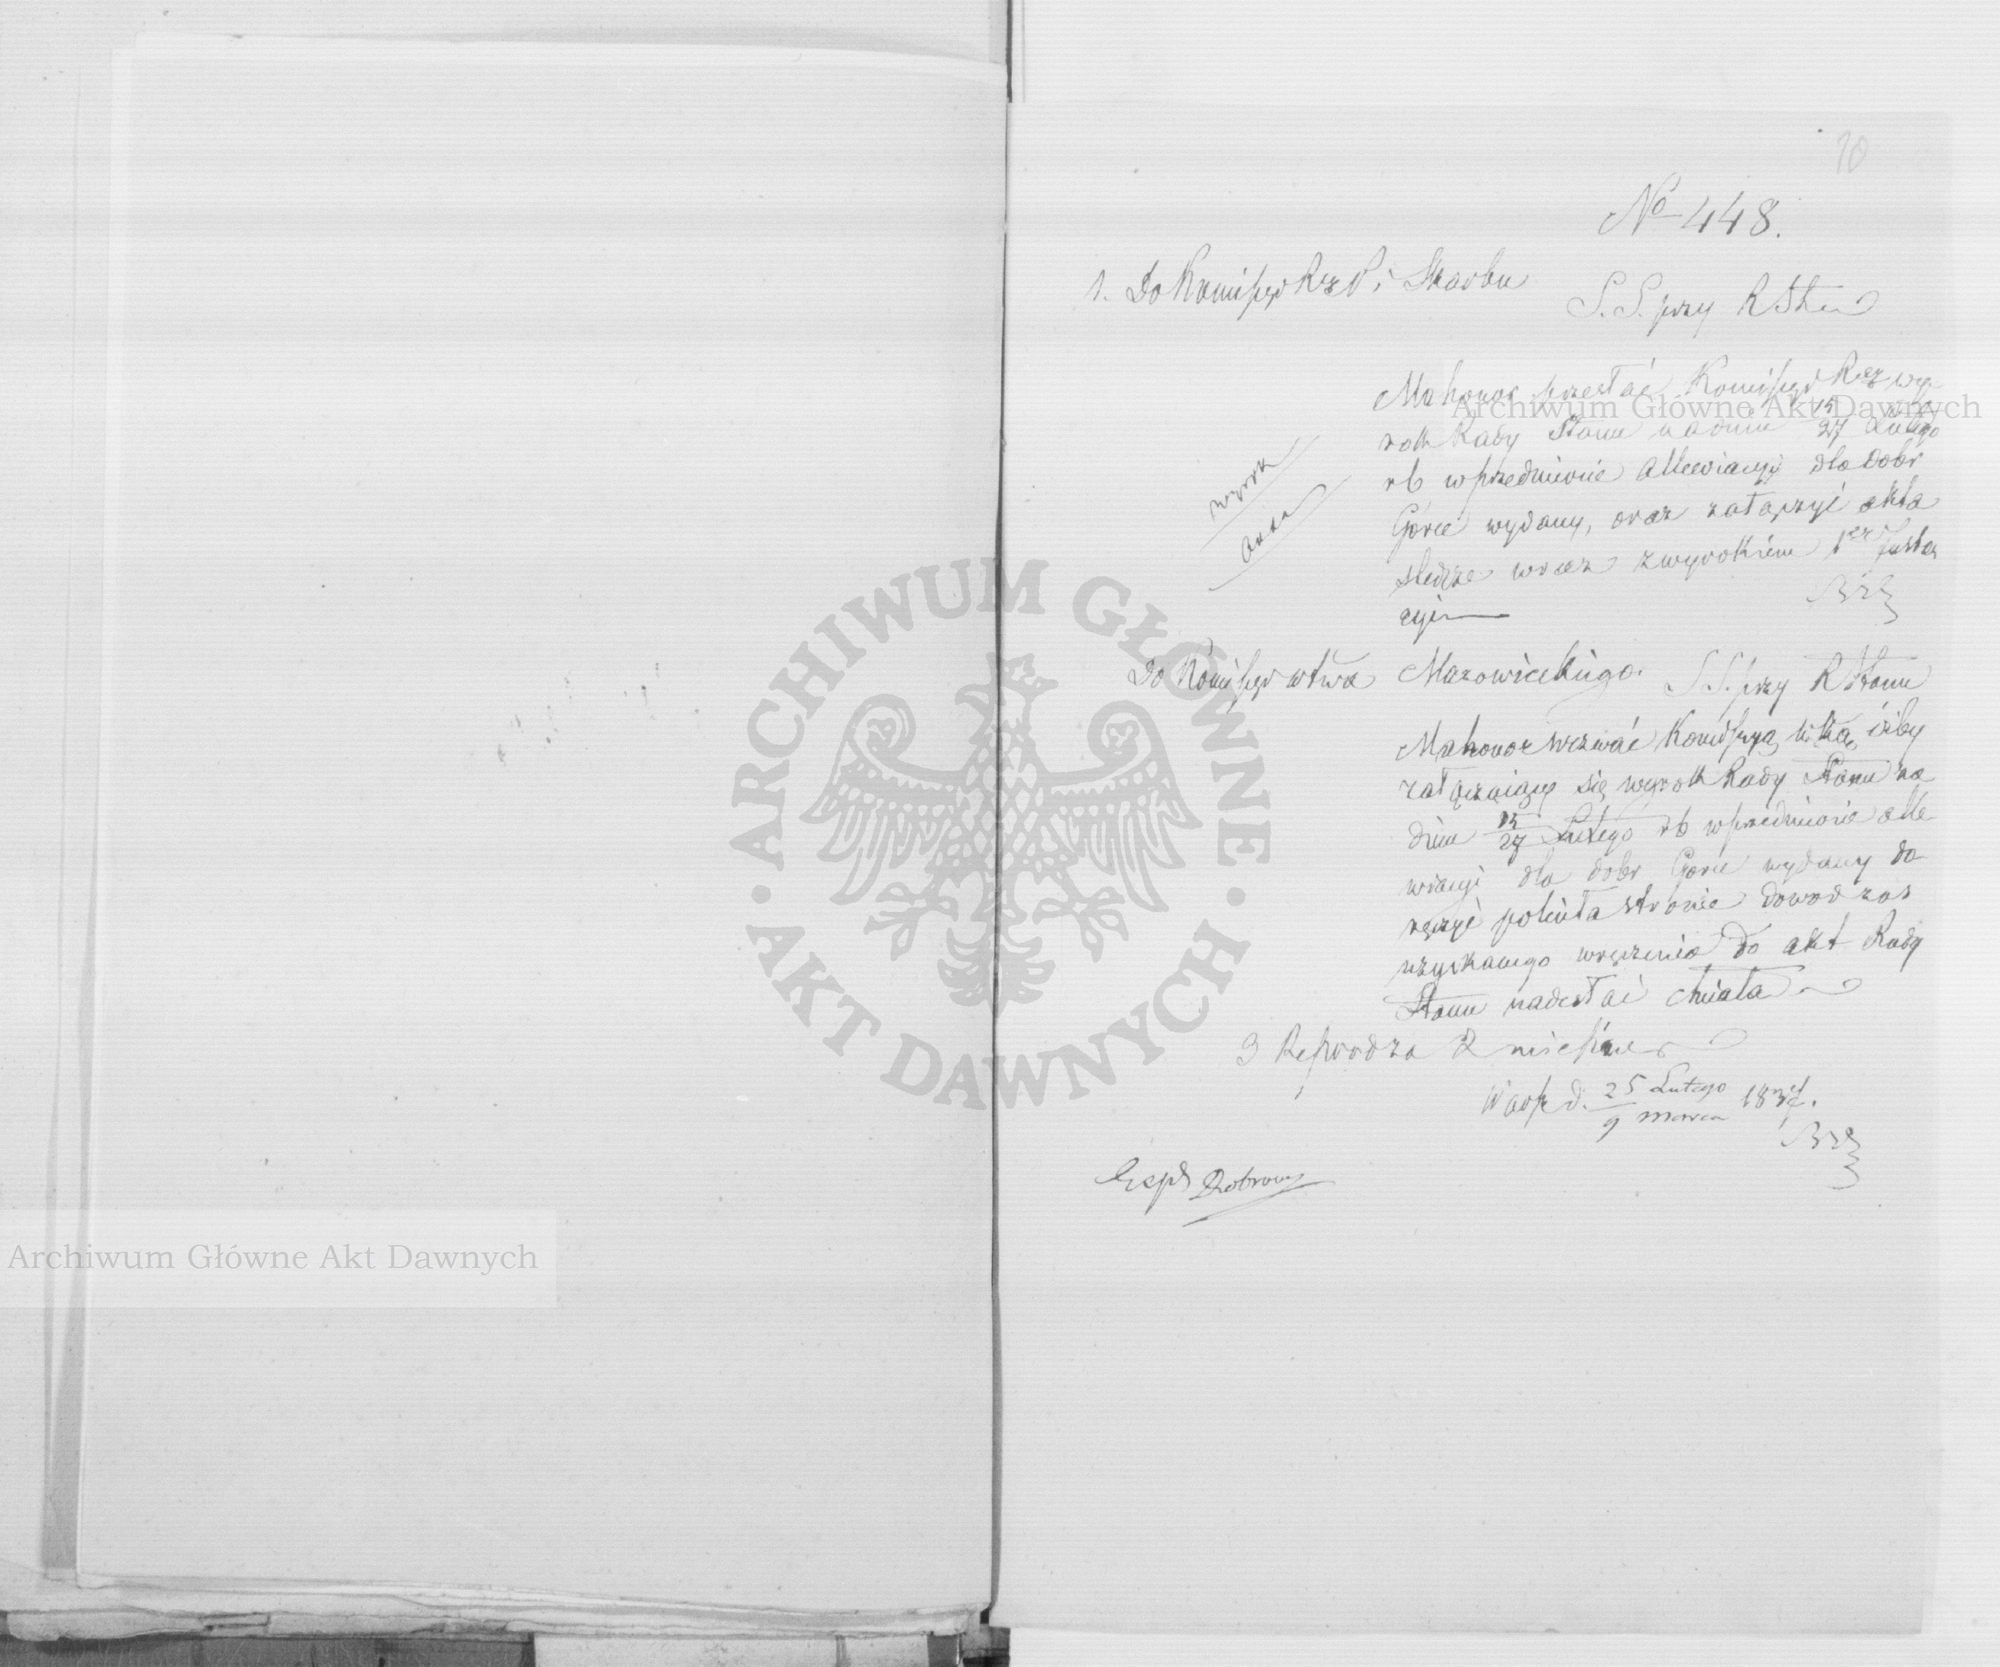 10
No 448.
1. Do Komissyi Rz P i Skarbu
S. S. przy R Stanu
Ma honor przesłać Komissyi Rz wy
rok Rady Stanu na dniu 15/27 Lutego
rb w przedmiocie allewiacyi dla dobr
Górce wydany, oraz załączyć akta
śledcze wraz z wyrokiem 1ey Instan
cyi
wyrok
akta
Do Komissyi Wtwa Mazowieckiego.
S. S. przy R Stanu
Ma honor wezwać Komissyą Wtką iżby
załączaiący się wyrok Rady Stanu na
dniu 15/27 Lutego rb w przedmiocie alle
wiacyi dla dobr Górce wydany do
ręczyć poleciła stronie dowod zas
uzyskanego wręczenia do akt Rady
Stanu nadesłać chciała
3 Reproduza 2 miesiące
Warsz d. 25 Lutego / 9 Marca 1837.
Exped Dobrowo
Archiwum Główne Akt Dawnych
ARCHIWUM GŁÓWNE AKT DAWNYCH
Archiwum Główne Akt Dawnych